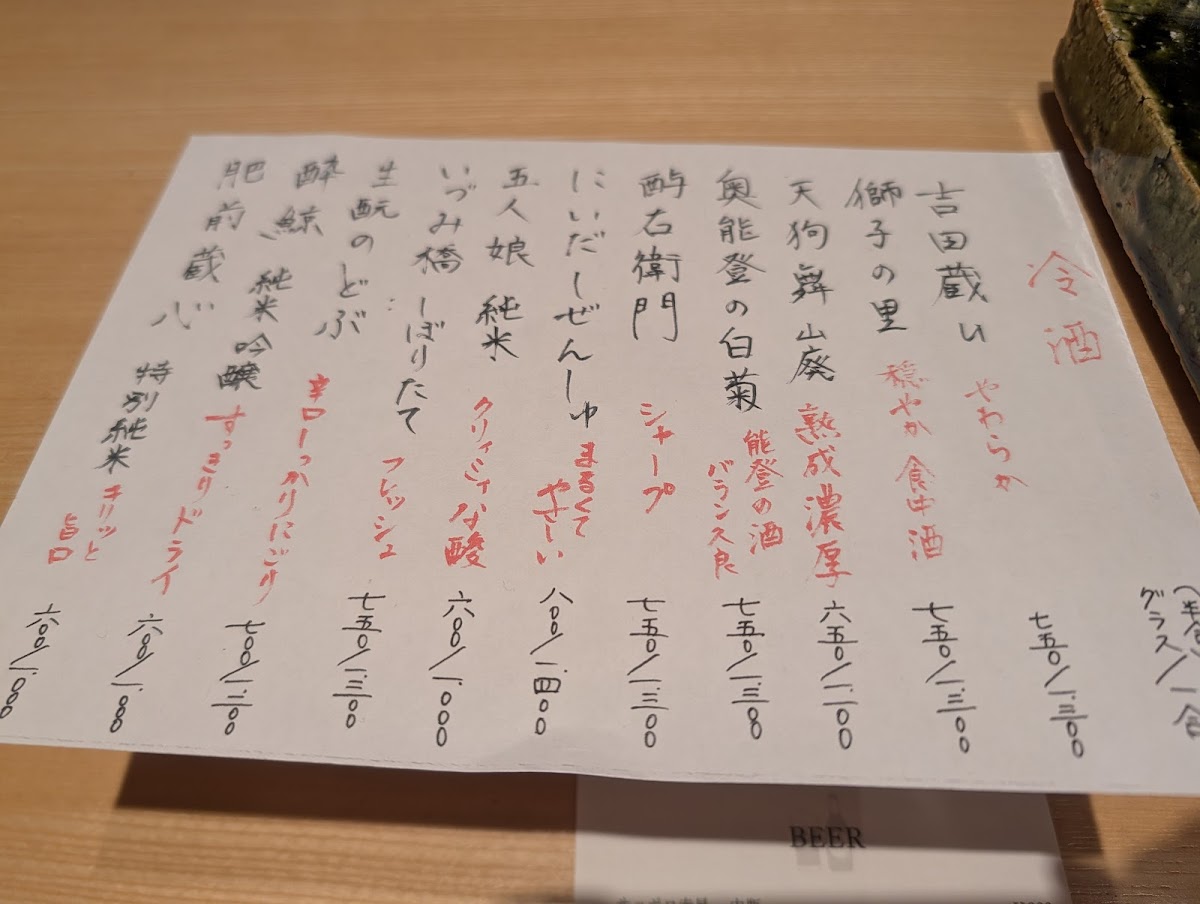 冷酒
(半合)
グラス/一合
吉田蔵u
やわらか
七五〇/一.三〇〇
獅子の里
穏やか 食中酒
七五〇/一.三〇〇
天狗舞 山廃
熟成濃厚
六五〇/一.一〇〇
奥能登の白菊
能登の酒
バランス良
七五〇/一.三〇
酉与右衛門
シャープ
七五〇/一.三〇〇
にいだしぜんしゅ
まるくて
やさしい
八〇〇/一.四〇〇
五人娘 純米
クリィミィな酸
六〇〇/一.〇〇〇
いづみ橋 しぼりたて
フレッシュ
七五〇/一.三〇〇
生酛のどぶ
辛口しっかりにごり
七〇〇/一.二〇〇
酔鯨 純米吟醸
すっきりドライ
六〇〇/一.〇〇〇
肥前蔵心
特別純米
キリッと
旨口
六〇〇/一.〇〇〇
BEER